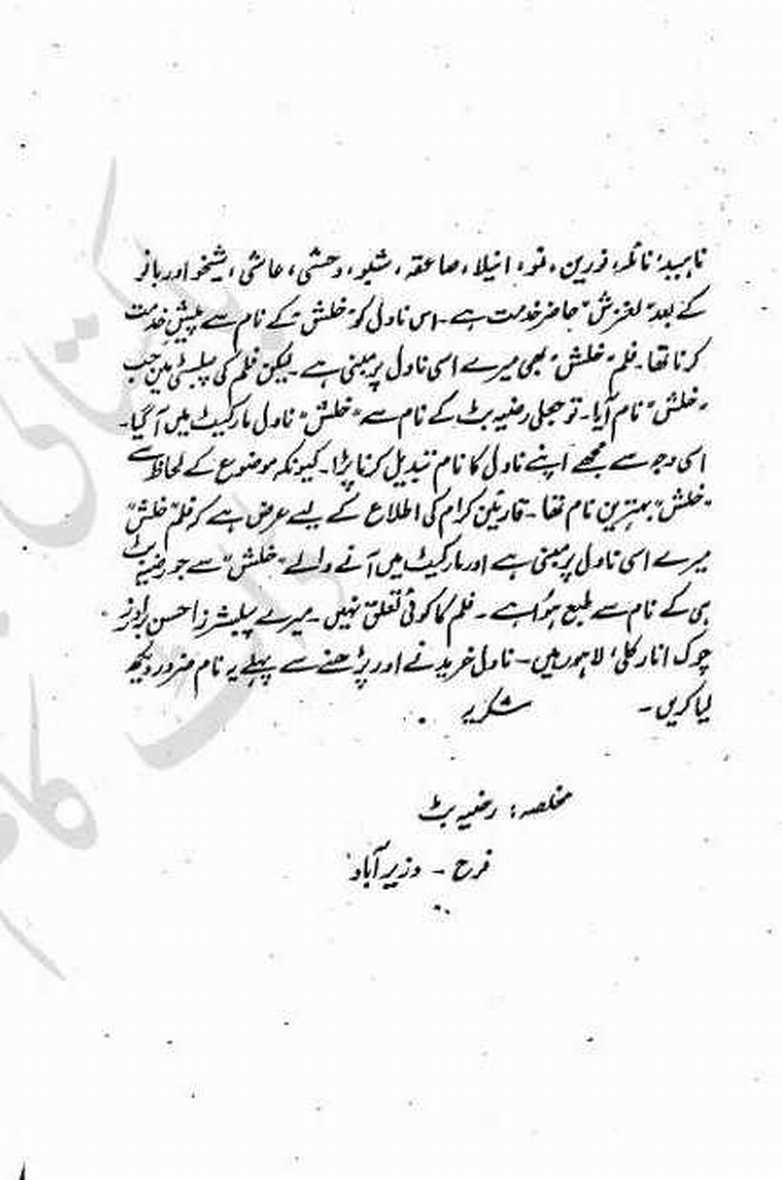 ناہید، نائلہ، نورین، نمو، انیلا، صاعقہ، شبو، وحشی، عاشی، شیخو اور بانو
کے بعد "لغزش" حاضر خدمت ہے۔ اس ناول کو "خلش" کے نام سے پیش خدمت
کرنا تھا۔ فلم "خلش" بھی میرے اسی ناول پر مبنی ہے۔ لیکن فلم کی پبلسٹی میں جب
"خلش" نام آیا۔ تو جعلی رضیہ بٹ کے نام سے "خلش" ناول مارکیٹ میں آ گیا۔
اسی وجہ سے مجھے اپنے ناول کا نام تبدیل کرنا پڑا۔ کیونکہ موضوع کے لحاظ سے
"خلش" بہترین نام تھا۔ قارئین کرام کی اطلاع کے لیے عرض ہے کہ فلم "خلش"
میرے اسی ناول پر مبنی ہے اور مارکیٹ میں آنے والے "خلش" سے جو رضیہ بٹ
ہی کے نام سے طبع ہوُا ہے۔ فلم کا کوئی تعلق نہیں۔ میرے پبلیشرز احسن برادرز
چوک انارکلی، لاہور ہیں۔ ناول خریدنے اور پڑھنے سے پہلے یہ نام ضرور دیکھ
لیا کریں۔ شکریہ
مخلصہ: رضیہ بٹ
فرح - وزیر آباد